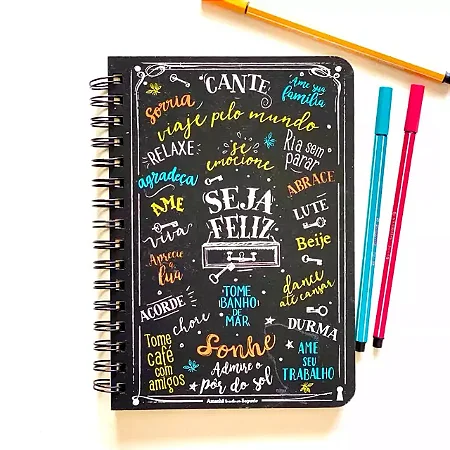 CANTE
Ame sua
família
Sorria
viaje pelo mundo
RELAXE
se
emocione
Ria sem
parar
agradeça
ABRACE
AME
SEJA
FELIZ
LUTE
viva
Beije
Aprecie
a
lua
dance
até cansar
TOME
BANHO
DE
MAR
ACORDE
chore
DURMA
Tome
café
com
amigos
Sonhe
Admire o
pôr do sol
AME
SEU
TRABALHO